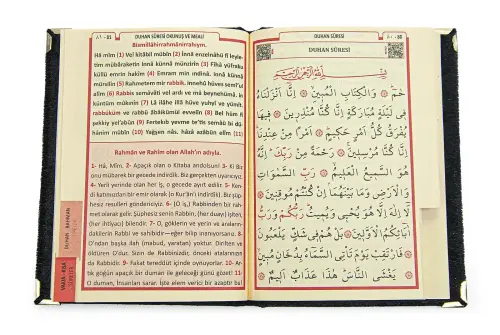 ٨١ - 81
DUHAN SÛRESİ OKUNUŞ VE MEALİ
Bismillâhirrahmânirrahıym.
Hâ mîm (1) Vel kitâbil mübîn (2) İnnâ enzelnâhü fî leyle-
tim mübâraketin innâ künnâ münzirîn (3) Fîhâ yüfraku
küllü emrin hakîm (4) Emram min ındinâ. innâ künnâ
mürsilîn (5) Rahmetem mir rabbik. innehû hüves semî'ul
alîm (6) Rabbis semâvâti vel ardı ve mâ beynehümâ. in
küntüm mûkınîn (7) Lâ ilâhe illâ hüve yuhyî ve yümît.
rabbüküm ve rabbü âbâikümül evvelîn (8) Bel hüm fî
şekkiy yel'abûn (9) Fertekıb yevme te'tis semâü bi dü-
hânim mübîn (10) Yağşen nâs. hâzâ azâbün elîm (11)
Rahmân ve Rahîm olan Allah'ın adıyla.
1- Hâ, Mîm. 2- Apaçık olan o Kitaba andolsun! 3- Ki Biz
onu mübarek bir gecede indirdik. Biz gerçekten uyarıcıyız.
4- Yerli yerinde olan her iş, o gecede ayırt edilir. 5- Ken-
di katımızdan bir emir olarak (o Kur'ân'ı indirdik). Biz elçi-
ler resulleri göndericiyiz. 6- (O iş,) Rabbinden bir rah-
met olarak gelir. Şüphesiz senin Rabbin, (her duayı) işiten,
(her ihtiyacı) bilendir. 7- O, göklerin ve yerin ve araların-
dakilerin Rabbi ve sahibidir—eğer bilip inanıyorsanız. 8-
O'ndan başka ilah (mabud, yaratan) yoktur. Diriltir ve
öldüren O'dur. Sizin de Rabbinizdir, önceki atalarınızın
da Rabbidir. 9- Fakat tereddüt içinde oynuyorlar. 10- Ar-
tık göğün apaçık bir duman ile geleceği günü gözet! 11-
O duman, insanları sarar. İşte elem verici bir azaptır bu!
DUHAN
RAHMAN
VAKIA - HAŞR
DUHAN SÛRESİ
٨٠ - 80
DUHAN SÛRESİ
بِسْمِ اللّٰهِ الرَّحْمٰنِ الرَّحِيمِ
حٰمٓ ﴿١﴾ وَالْكِتَابِ الْمُبِينِ ﴿٢﴾ اِنَّٓا اَنْزَلْنَاهُ
فِي لَيْلَةٍ مُبَارَكَةٍ اِنَّا كُنَّا مُنْذِرِينَ ﴿٣﴾ فِيهَا
يُفْرَقُ كُلُّ اَمْرٍ حَكِيمٍ ﴿٤﴾ اَمْرًا مِنْ عِنْدِنَا
اِنَّا كُنَّا مُرْسِلِينَ ﴿٥﴾ رَحْمَةً مِنْ رَبِّكَ اِنَّهُ
هُوَ السَّمِيعُ الْعَلِيمُ ﴿٦﴾ رَبِّ السَّمٰوَاتِ
وَالْاَرْضِ وَمَا بَيْنَهُمَا اِنْ كُنْتُمْ مُوقِنِينَ ﴿٧﴾
لَٓا اِلٰهَ اِلَّا هُوَ يُحْيِي وَيُمِيتُ رَبُّكُمْ وَرَبُّ
اٰبَٓائِكُمُ الْاَوَّلِينَ ﴿٨﴾ بَلْ هُمْ فِي شَكٍّ يَلْعَبُونَ ﴿٩﴾
فَارْتَقِبْ يَوْمَ تَأْتِي السَّمَٓاءُ بِدُخَانٍ مُبِينٍ ﴿١٠﴾
يَغْشَى النَّاسَ هٰذَا عَذَابٌ اَلِيمٌ ﴿١١﴾